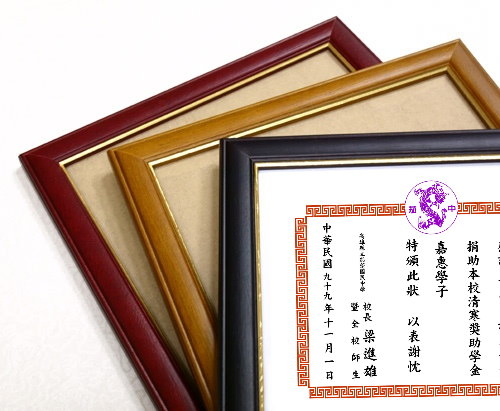 中
捐助本校清寒獎助學金
嘉惠學子
特頒此狀 以表謝忱
校長 梁進雄
暨全校師生
中華民國九十九年十一月一日